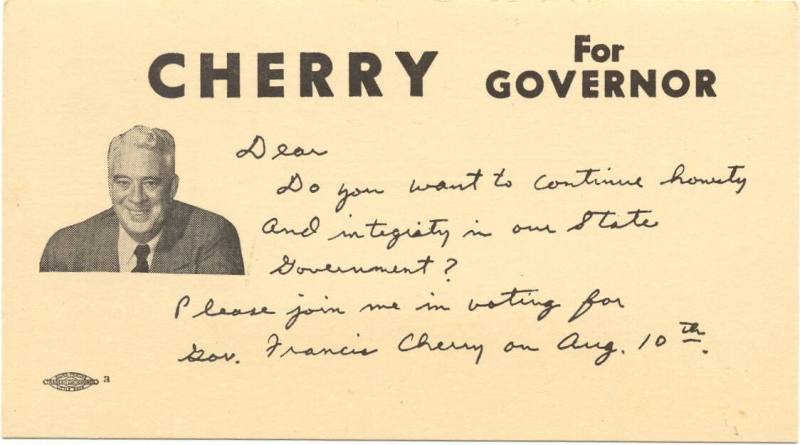 CHERRY For GOVERNOR
Dear
Do you want to continue honesty
And integrity in our State
Government?
Please join me in voting for
Gov. Francis Cherry on Aug. 10th.
3